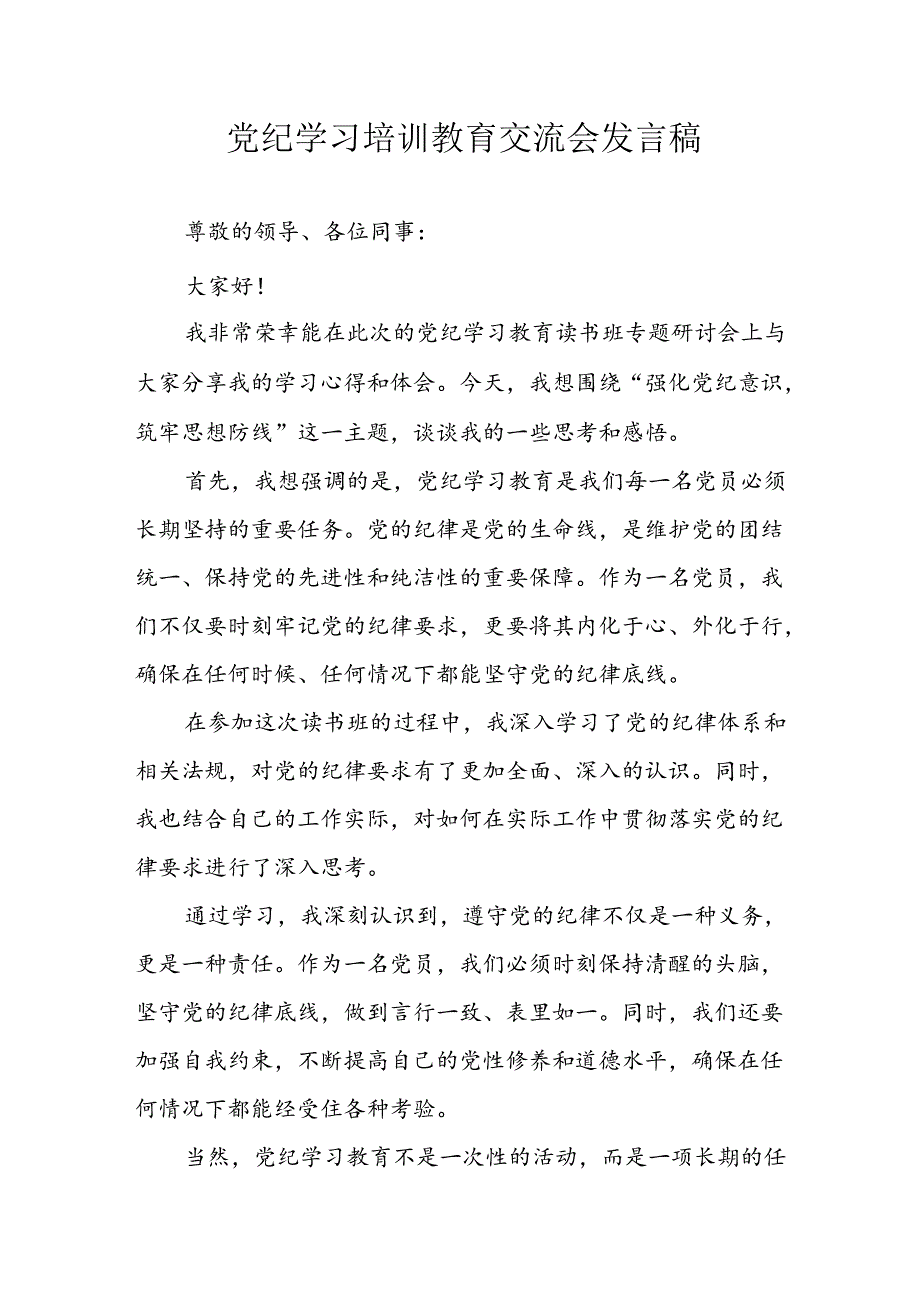 党纪学习培训教育交流会发言稿
尊敬的领导、各位同事：
大家好！
我非常荣幸能在此次的党纪学习教育读书班专题研讨会上与
大家分享我的学习心得和体会。今天，我想围绕“强化党纪意识，
筑牢思想防线”这一主题，谈谈我的一些思考和感悟。
首先，我想强调的是，党纪学习教育是我们每一名党员必须
长期坚持的重要任务。党的纪律是党的生命线，是维护党的团结
统一、保持党的先进性和纯洁性的重要保障。作为一名党员，我
们不仅要时刻牢记党的纪律要求，更要将其内化于心、外化于行，
确保在任何时候、任何情况下都能坚守党的纪律底线。
在参加这次读书班的过程中，我深入学习了党的纪律体系和
相关法规，对党的纪律要求有了更加全面、深入的认识。同时，
我也结合自己的工作实际，对如何在实际工作中贯彻落实党的纪
律要求进行了深入思考。
通过学习，我深刻认识到，遵守党的纪律不仅是一种义务，
更是一种责任。作为一名党员，我们必须时刻保持清醒的头脑，
坚守党的纪律底线，做到言行一致、表里如一。同时，我们还要
加强自我约束，不断提高自己的党性修养和道德水平，确保在任
何情况下都能经受住各种考验。
当然，党纪学习教育不是一次性的活动，而是一项长期的任